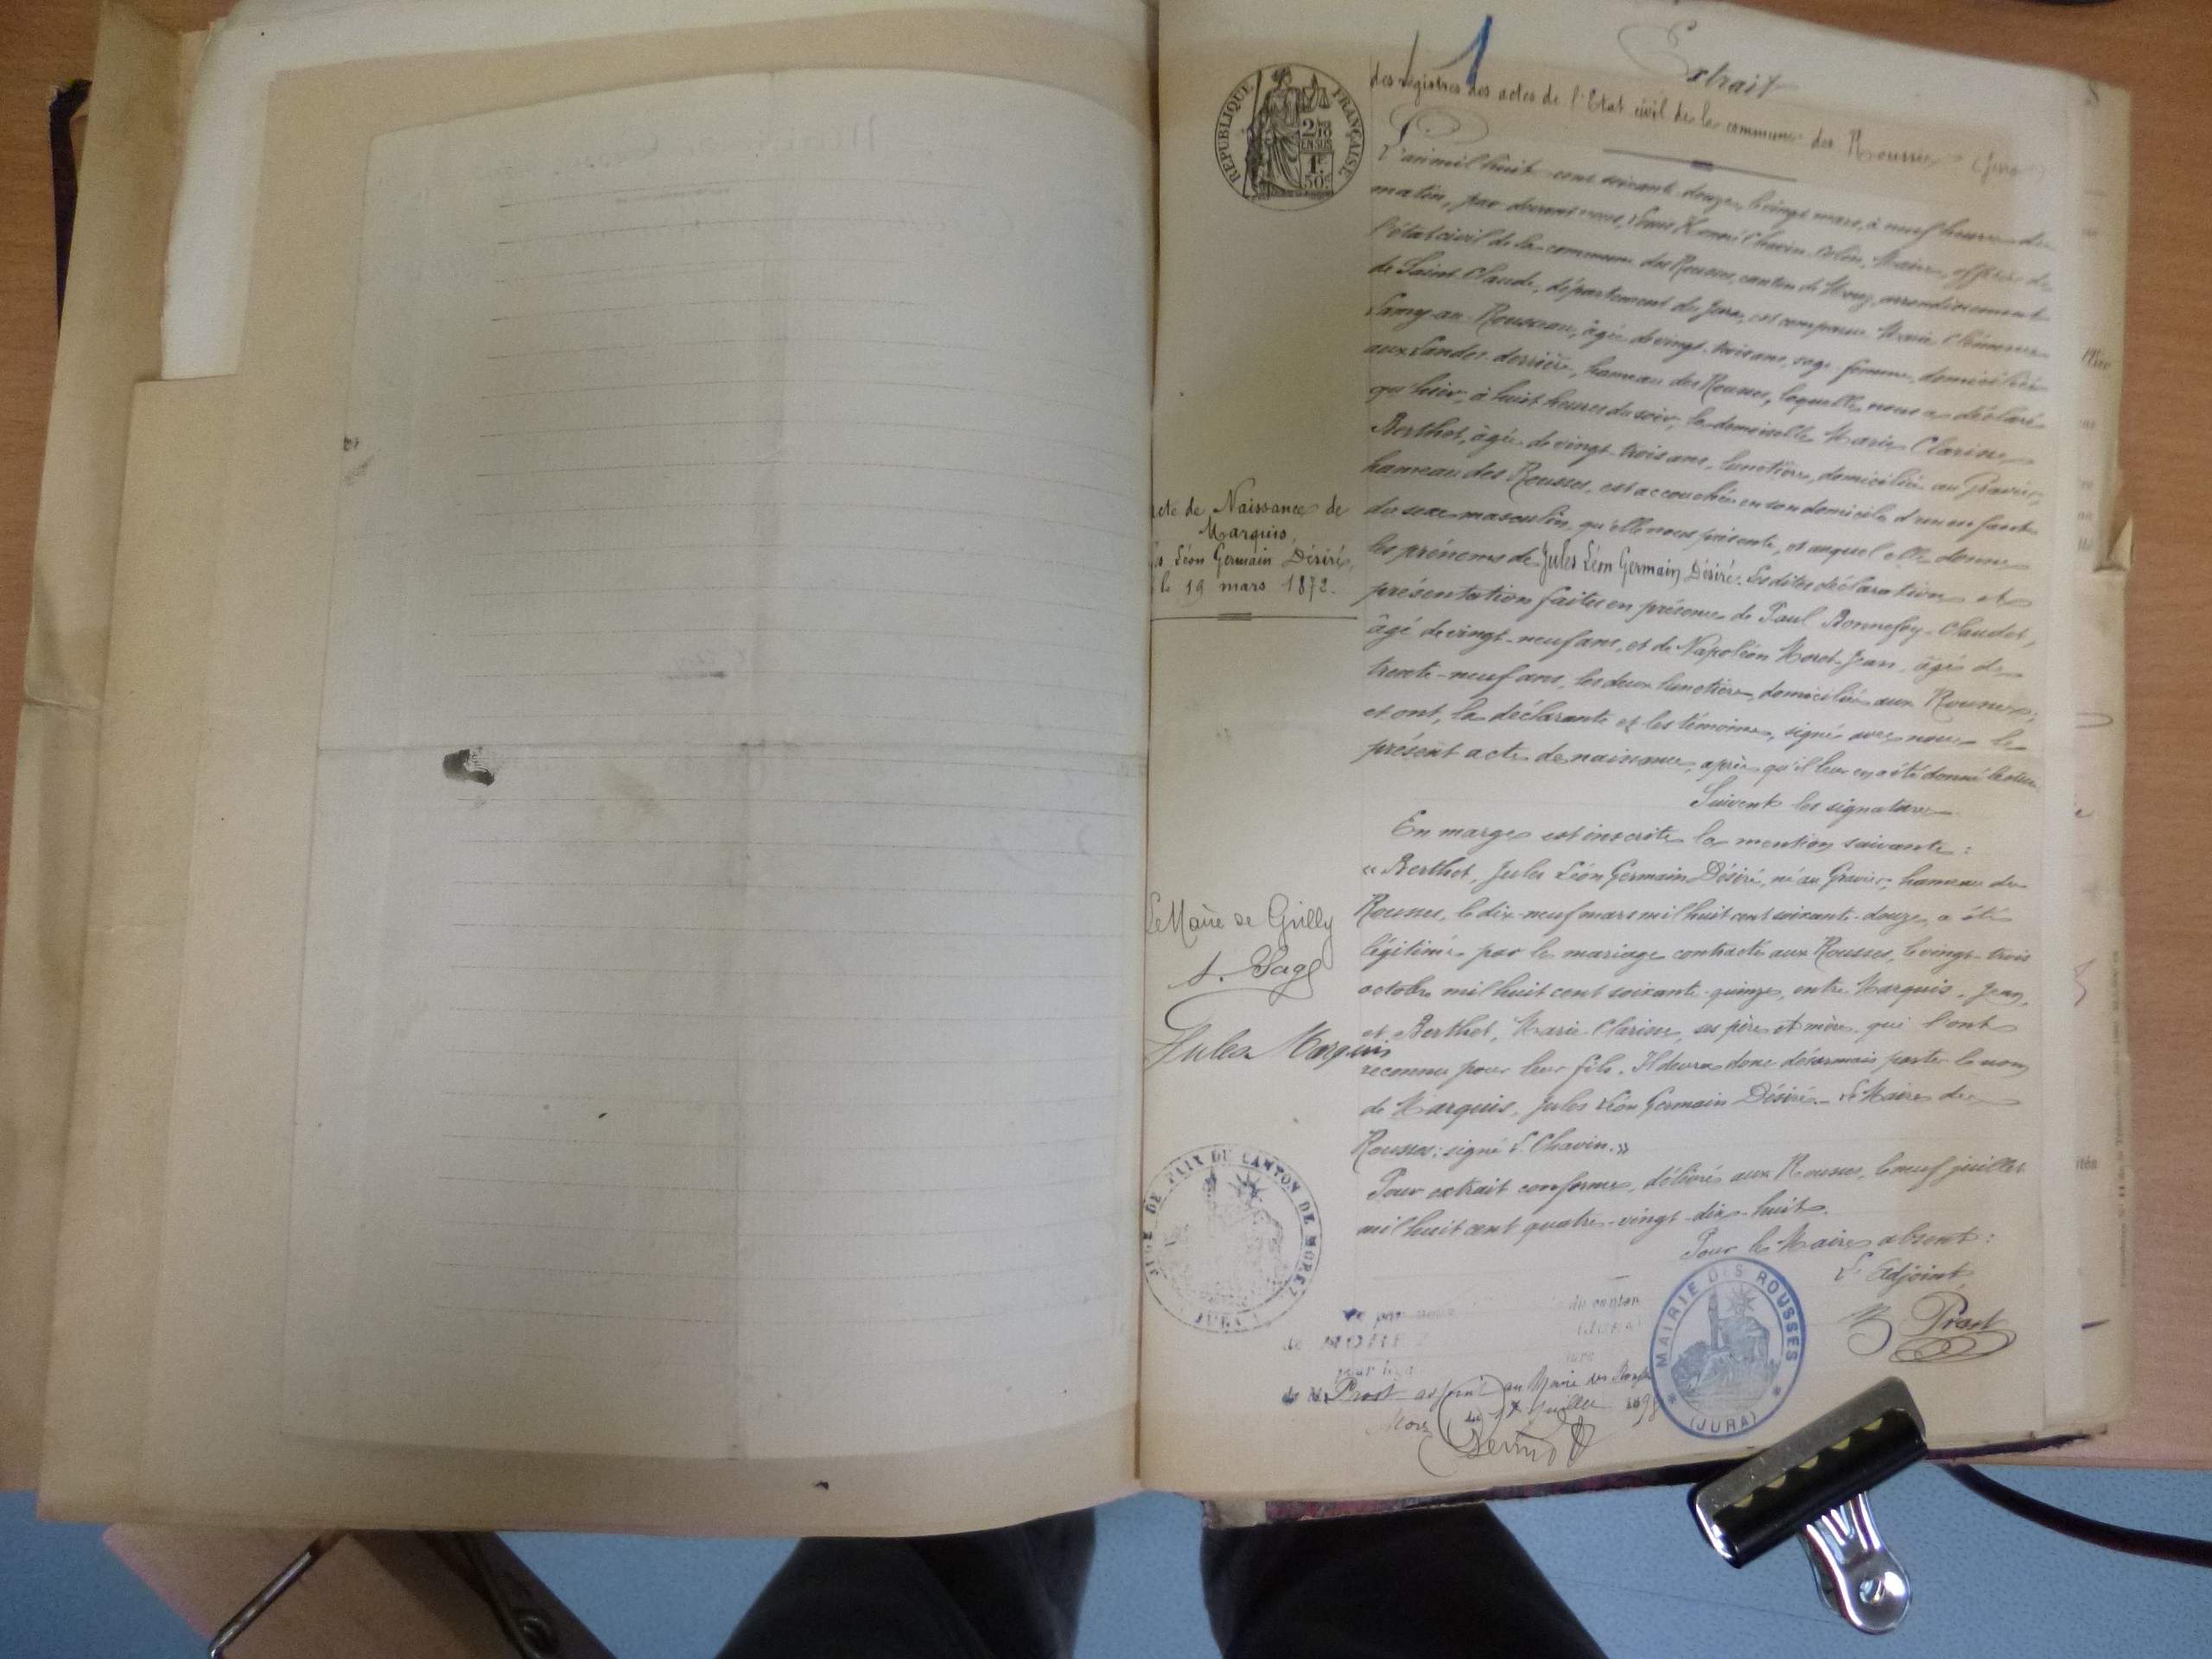 1
Extrait
des registres des actes de l'Etat civil de la commune des Rousses (Jura)
REPUBLIQUE FRANÇAISE
2/10
EN SUS
1F
50c
L'an mil huit cent soixante-douze, le vingt mars, à neuf heures du
matin, par devant nous, Louis Henri Chavin-Colin, Maire, officier de
l'état civil de la commune des Rousses, canton de Morez, arrondissement
de Saint-Claude, département du Jura, est comparue Marie
Lamy-au-Rousseau, âgée de vingt-trois ans, sage-femme, domiciliée
aux Landes-derrière, hameau des Rousses, laquelle nous a déclaré
qu'hier, à huit heures du soir, la demoiselle Marie Clarisse
Berthet, âgée de vingt-trois ans, lunetière, domiciliée au Gravier,
hameau des Rousses, est accouchée en son domicile d'un enfant
du sexe masculin, qu'elle nous présente, et auquel elle donne
les prénoms de Jules Léon Germain Désiré. Lesdites déclaration et
présentation faites en présence de Paul Bonnefoy-Claudet,
âgé de vingt-neuf ans, et de Napoléon Morel-Jean, âgé de
trente-neuf ans, les deux lunetiers, domiciliés aux Rousses,
et ont, la déclarante et les témoins, signé avec nous le
présent acte de naissance, après qu'il leur en a été donné lecture.
Suivent les signatures
En marge est inscrite la mention suivante :
« Berthet, Jules Léon Germain Désiré, né au Gravier, hameau des
Rousses, le dix-neuf mars mil huit cent soixante-douze, a été
légitimé par le mariage contracté aux Rousses, le vingt-trois
octobre mil huit cent soixante-quinze, entre Marquis, Jean,
et Berthet, Marie-Clarisse, ses père et mère, qui l'ont
reconnu pour leur fils. Il devra donc désormais porter le nom
de Marquis, Jules Léon Germain Désiré. Le Maire des
Rousses : signé L. Chavin. »
Pour extrait conforme, délivré aux Rousses, le neuf juillet
mil huit cent quatre-vingt-dix-huit.
Pour le Maire absent :
L'Adjoint
Prost
acte de Naissance de
Marquis,
Léon Germain Désiré,
le 19 mars 1872.
Le Maire de Grilly
Jules Marquis
DE PAIX DU CANTON DE MOREZ
JURA
du canton
de MOREZ
de M. Prost adjoint au Maire des
Morez 17 juillet 1898
MAIRIE DES ROUSSES
(JURA)